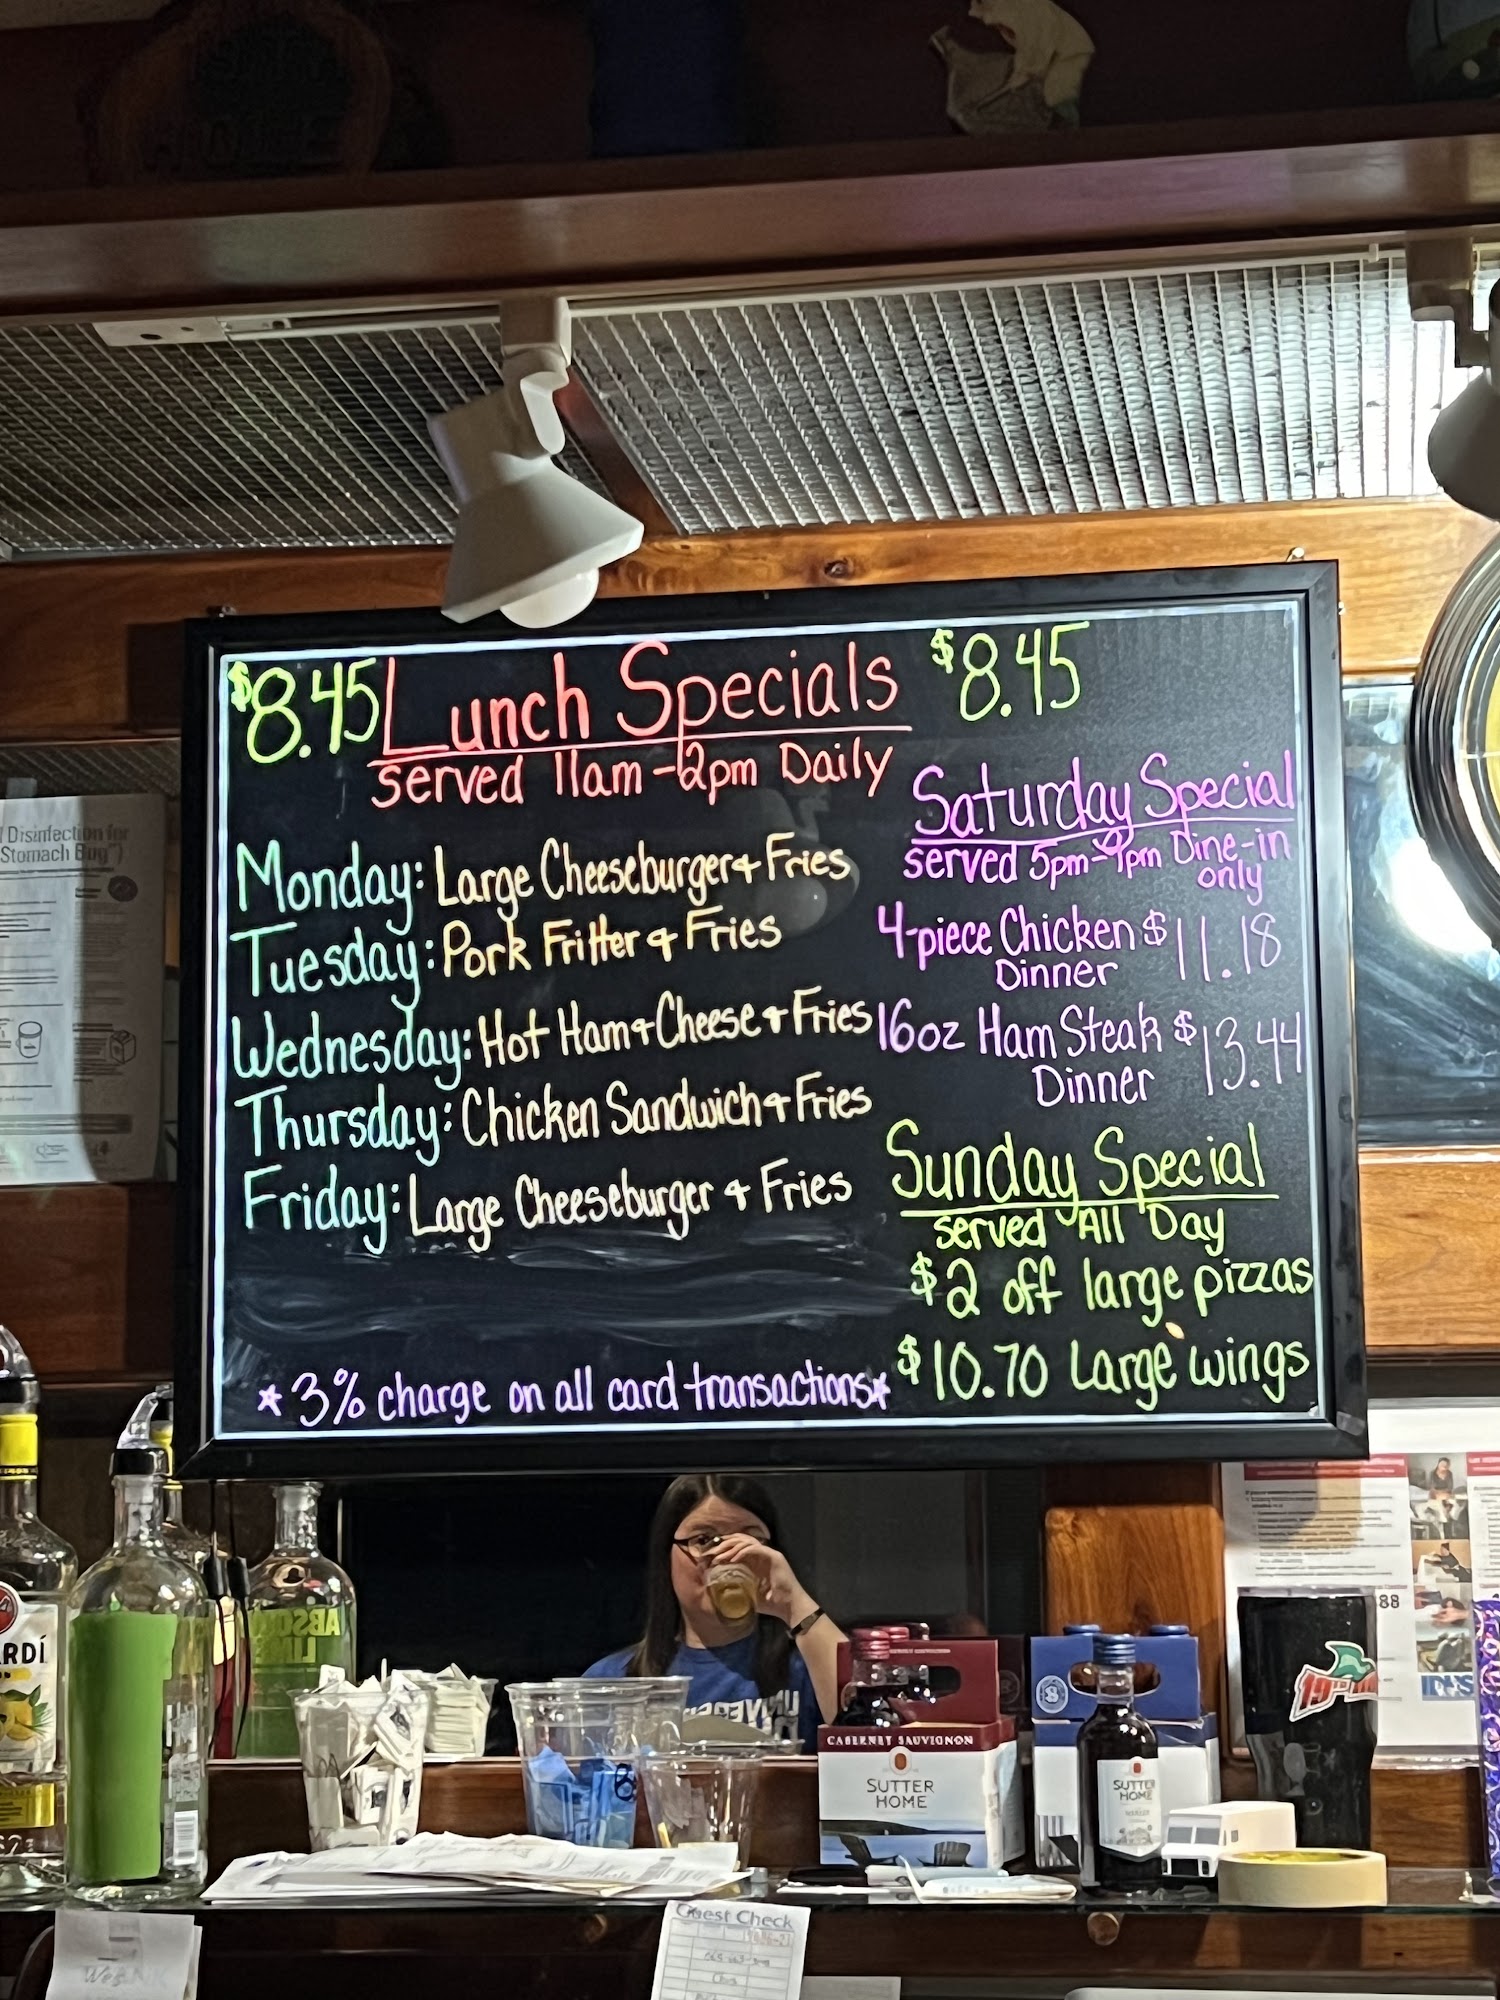 $8.45 Lunch Specials $8.45
served 11am-2pm Daily
Monday: Large Cheeseburger & Fries
Tuesday: Pork Fritter & Fries
Wednesday: Hot Ham & Cheese & Fries
Thursday: Chicken Sandwich & Fries
Friday: Large Cheeseburger & Fries
*3% charge on all card transactions*
Saturday Special
served 5pm-9pm Dine-in
only
4-piece Chicken $11.18
Dinner
16oz Ham Steak $13.44
Dinner
Sunday Special
served All Day
$2 off large pizzas
$10.70 Large wings
Disinfection for
Stomach Bug")
CABERNET SAUVIGNON
SUTTER
HOME
SUTTER
HOME
88
Guest Check